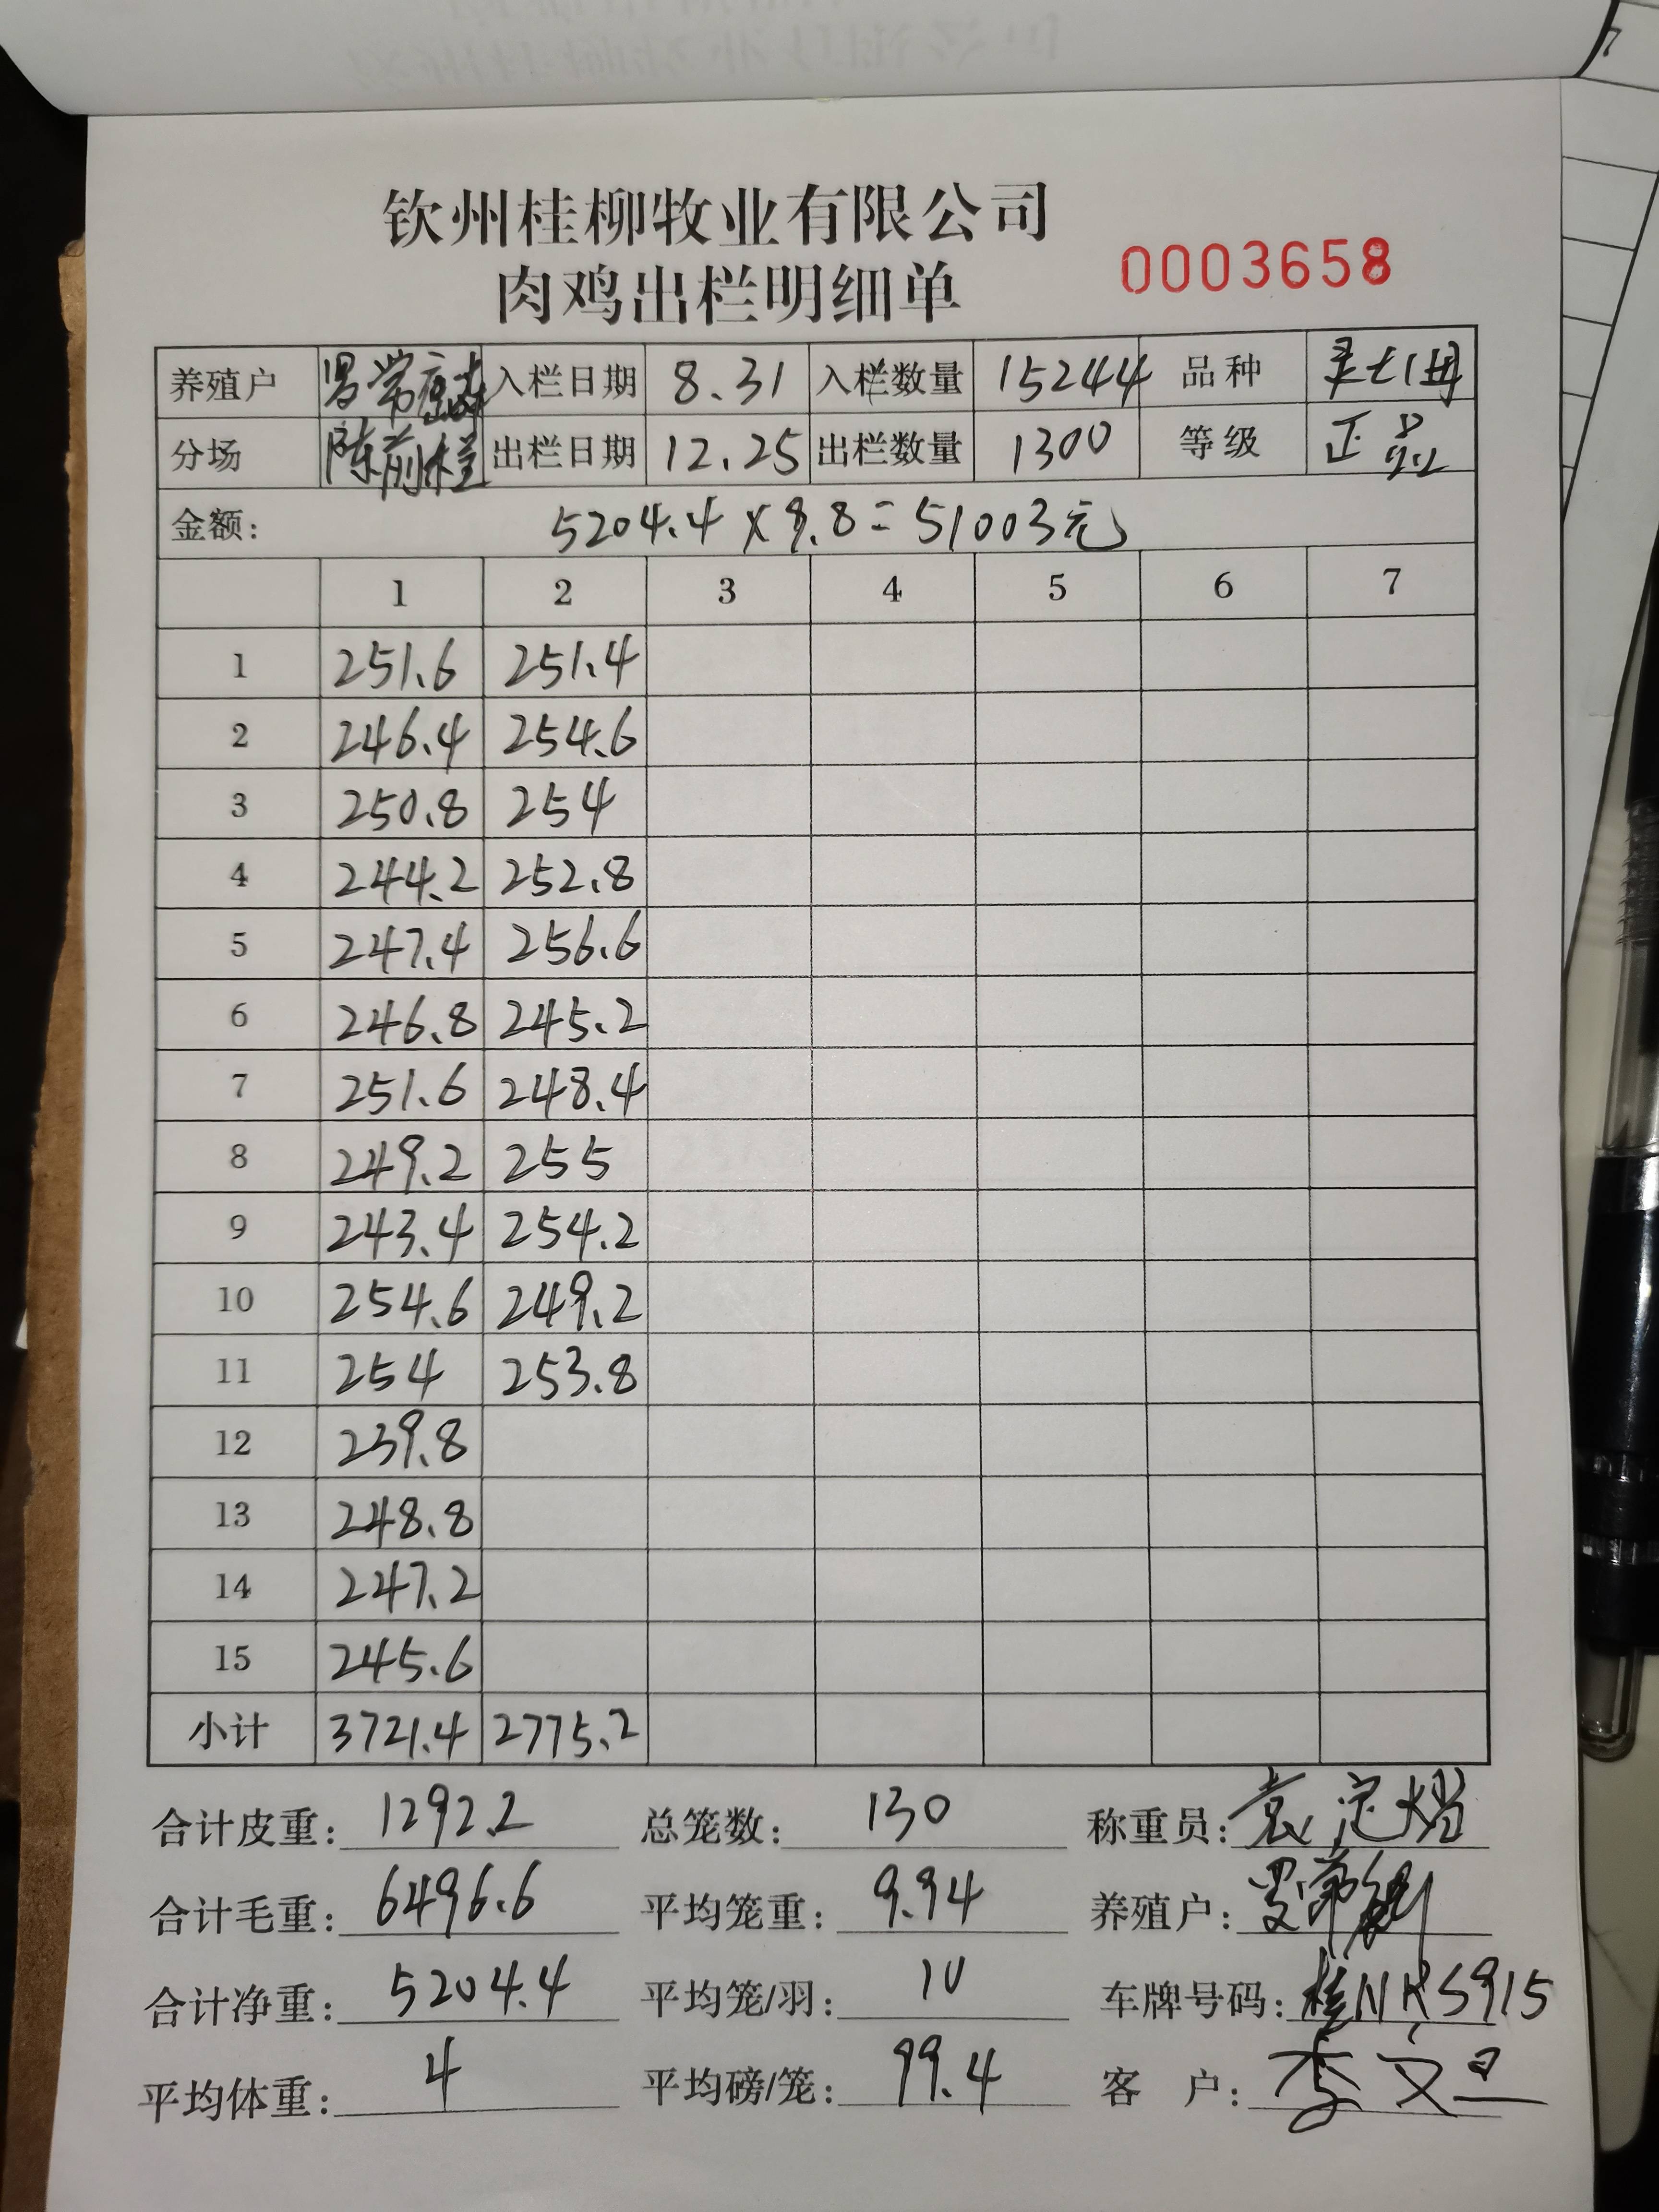 钦州桂柳牧业有限公司
肉鸡出栏明细单
0003658
养殖户 入栏日期 8.31 入栏数量 15244 品种
分场 陈前 出栏日期 12.25 出栏数量 1300 等级 正品
金额: 5204.4 x 9.8 = 51003元
1 2 3 4 5 6 7
1 251.6 251.4
2 246.4 254.6
3 250.8 254
4 244.2 252.8
5 247.4 256.6
6 246.8 245.2
7 251.6 248.4
8 249.2 255
9 243.4 254.2
10 254.6 249.2
11 254 253.8
12 239.8
13 248.8
14 247.2
15 245.6
小计 3721.4 2775.2
合计皮重: 1292.2 总笼数: 130 称重员: 袁定
合计毛重: 6496.6 平均笼重: 9.94 养殖户:
合计净重: 5204.4 平均笼/羽: 10 车牌号码: 桂NKS915
平均体重: 4 平均磅/笼: 99.4 客户: 李文